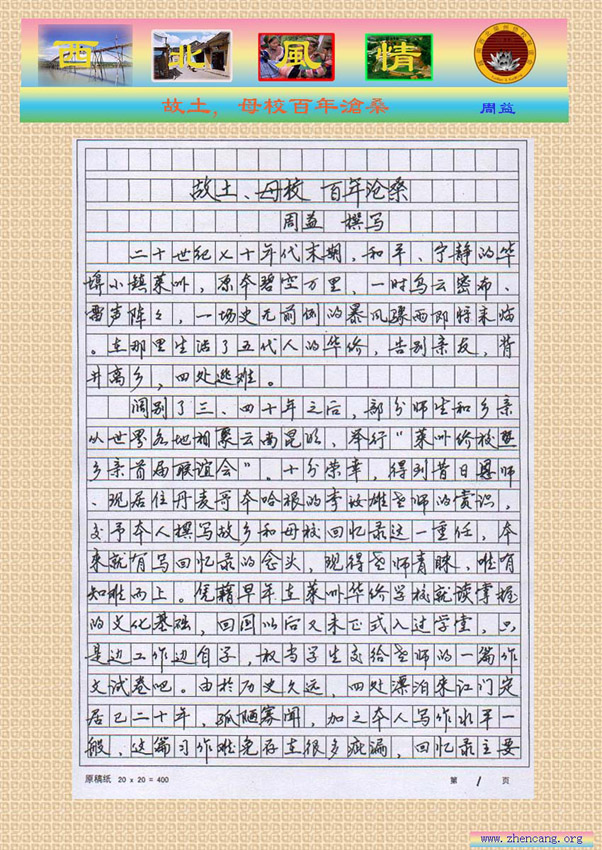 西北風情
故土，母校百年滄桑 周益
故土、母校 百年沧桑
周益 撰写
二十世纪七十年代末期，和平、宁静的华
埠小镇莱州，原本碧空万里，一时乌云密布、
雷声阵々，一场史无前例的暴风骤雨即将来临
。在那里生活了五代人的华侨，告别亲友，背
井离乡，四处逃难。
阔别了三、四十年之后，部分师生和乡亲
从世界各地相聚云南昆明，举行"莱州侨校暨
乡亲首届联谊会"。十分荣幸，得到昔日恩师
、现居住丹麦哥本哈根的李 雄老师的赏识，
交予本人撰写故乡和母校回忆录这一重任，本
来就有写回忆录的念头，现得老师青睐，唯有
知难而上。凭藉早年在莱州华侨学校就读掌握
的文化基础，回国以后又未正式入过学堂，只
是边工作边自学，权当学生交给老师的一篇作
文试卷吧。由於历史久远，四处漂泊来江门定
居已二十年，孤陋寡闻，加之本人写作水平一
般、这篇习作难免存在很多疵漏，回忆录主要
原稿纸 20 x 20 = 400 第 1 页
www.zhencang.org